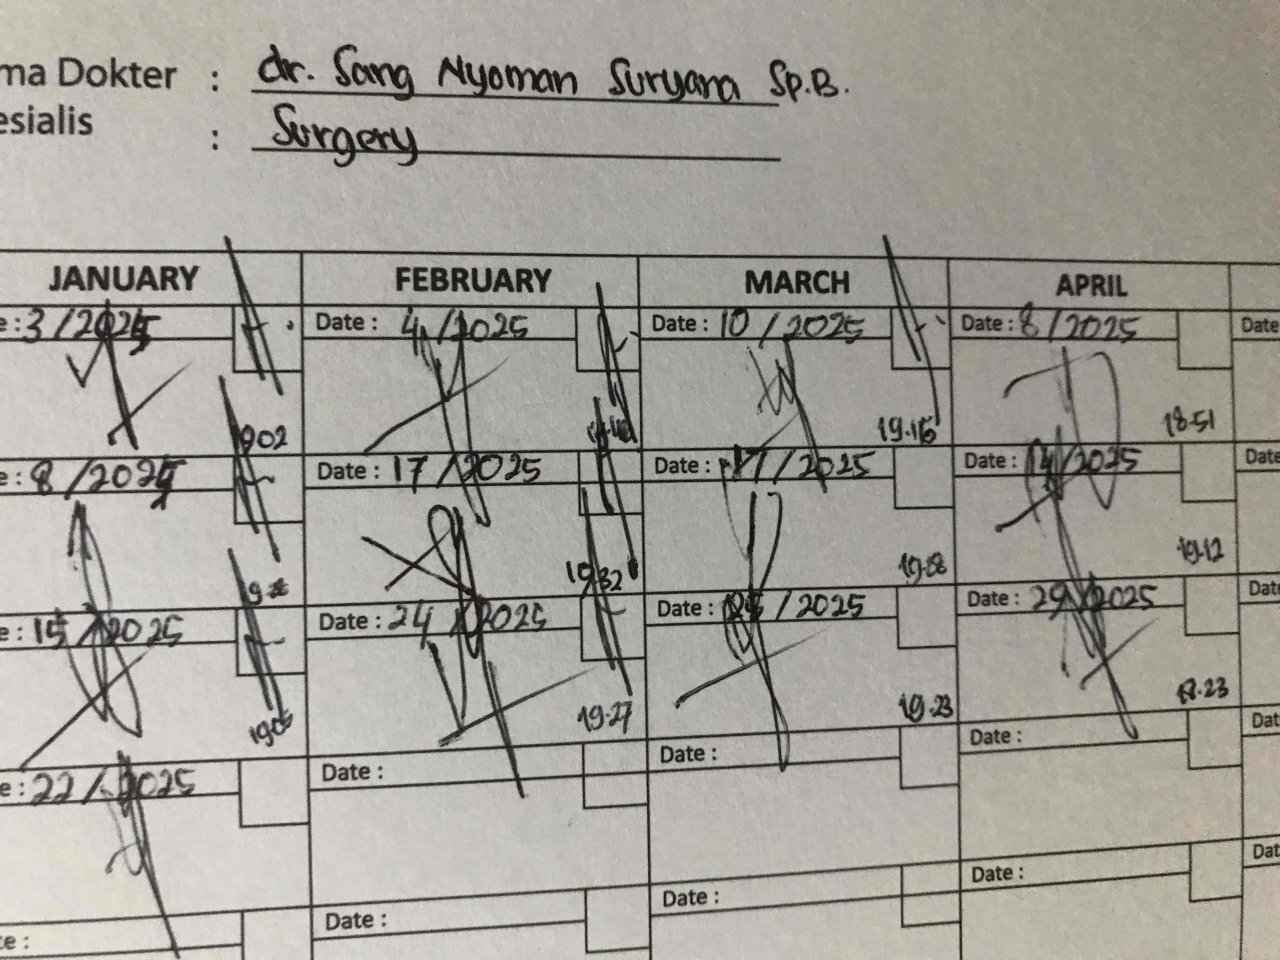 ma Dokter : dr. Sang Nyoman Suryana Sp.B.
esialis : Surgery
JANUARY FEBRUARY MARCH APRIL
e : 3 /2025 Date : 4 /2025 Date : 10 / 2025 Date : 8 /2025 Date
1902 19.16 18.51
e : 8 /2025 Date : 17 /2025 Date : 17 / 2025 Date : 14/2025 Date
19.32 19.12
e : 15 /2025 Date : 24 /2025 Date : / 2025 Date : 29/2025 Dat
1905 19.27 19.23 18.23
e : 22 / 2025 Date : Date : Date : Dat
te : Date : Date : Date : Dat